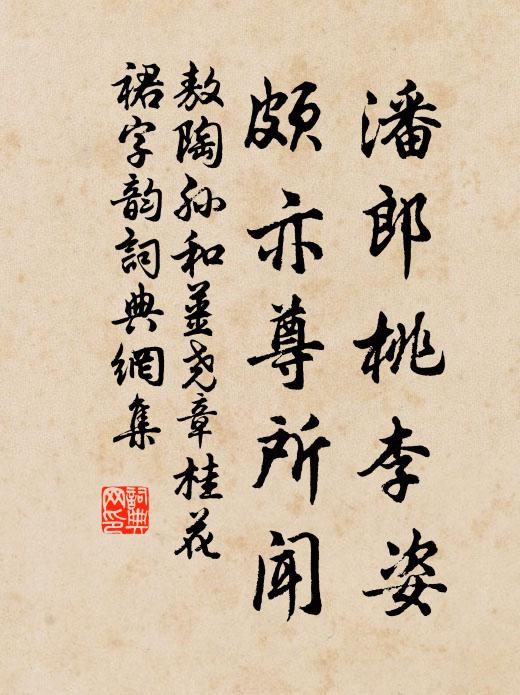 潘郎桃李姿
頗亦尊所聞
敖陶孙和姜尧章桂花
裙字韵詞典網集
詞典网印